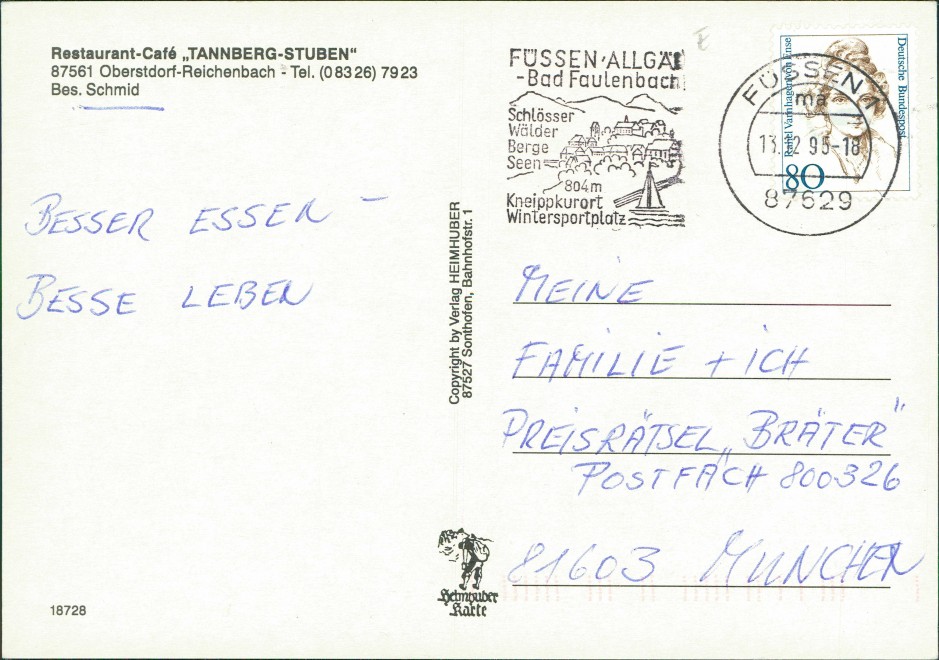 Restaurant-Café „TANNBERG-STUBEN“
87561 Oberstdorf-Reichenbach - Tel. (0 83 26) 79 23
Bes. Schmid
BESSER ESSEN –
BESSE LEBEN
18728
Copyright by Verlag HEIMHUBER
87527 Sonthofen, Bahnhofstr. 1
Heimhuber
Karte
FÜSSEN·ALLGÄ
-Bad Faulenbach
Schlösser
Wälder
Berge
Seen
804m
Kneippkurort
Wintersportplatz
FÜSSEN 1
ma
13. 2 95-18
87629
Deutsche Bundespost
Rahel Varnhagen von Ense
80
MEINE
FAMILIE + ICH
PREISRÄTSEL „BRÄTER“
POSTFACH 800326
81603 MÜNCHEN